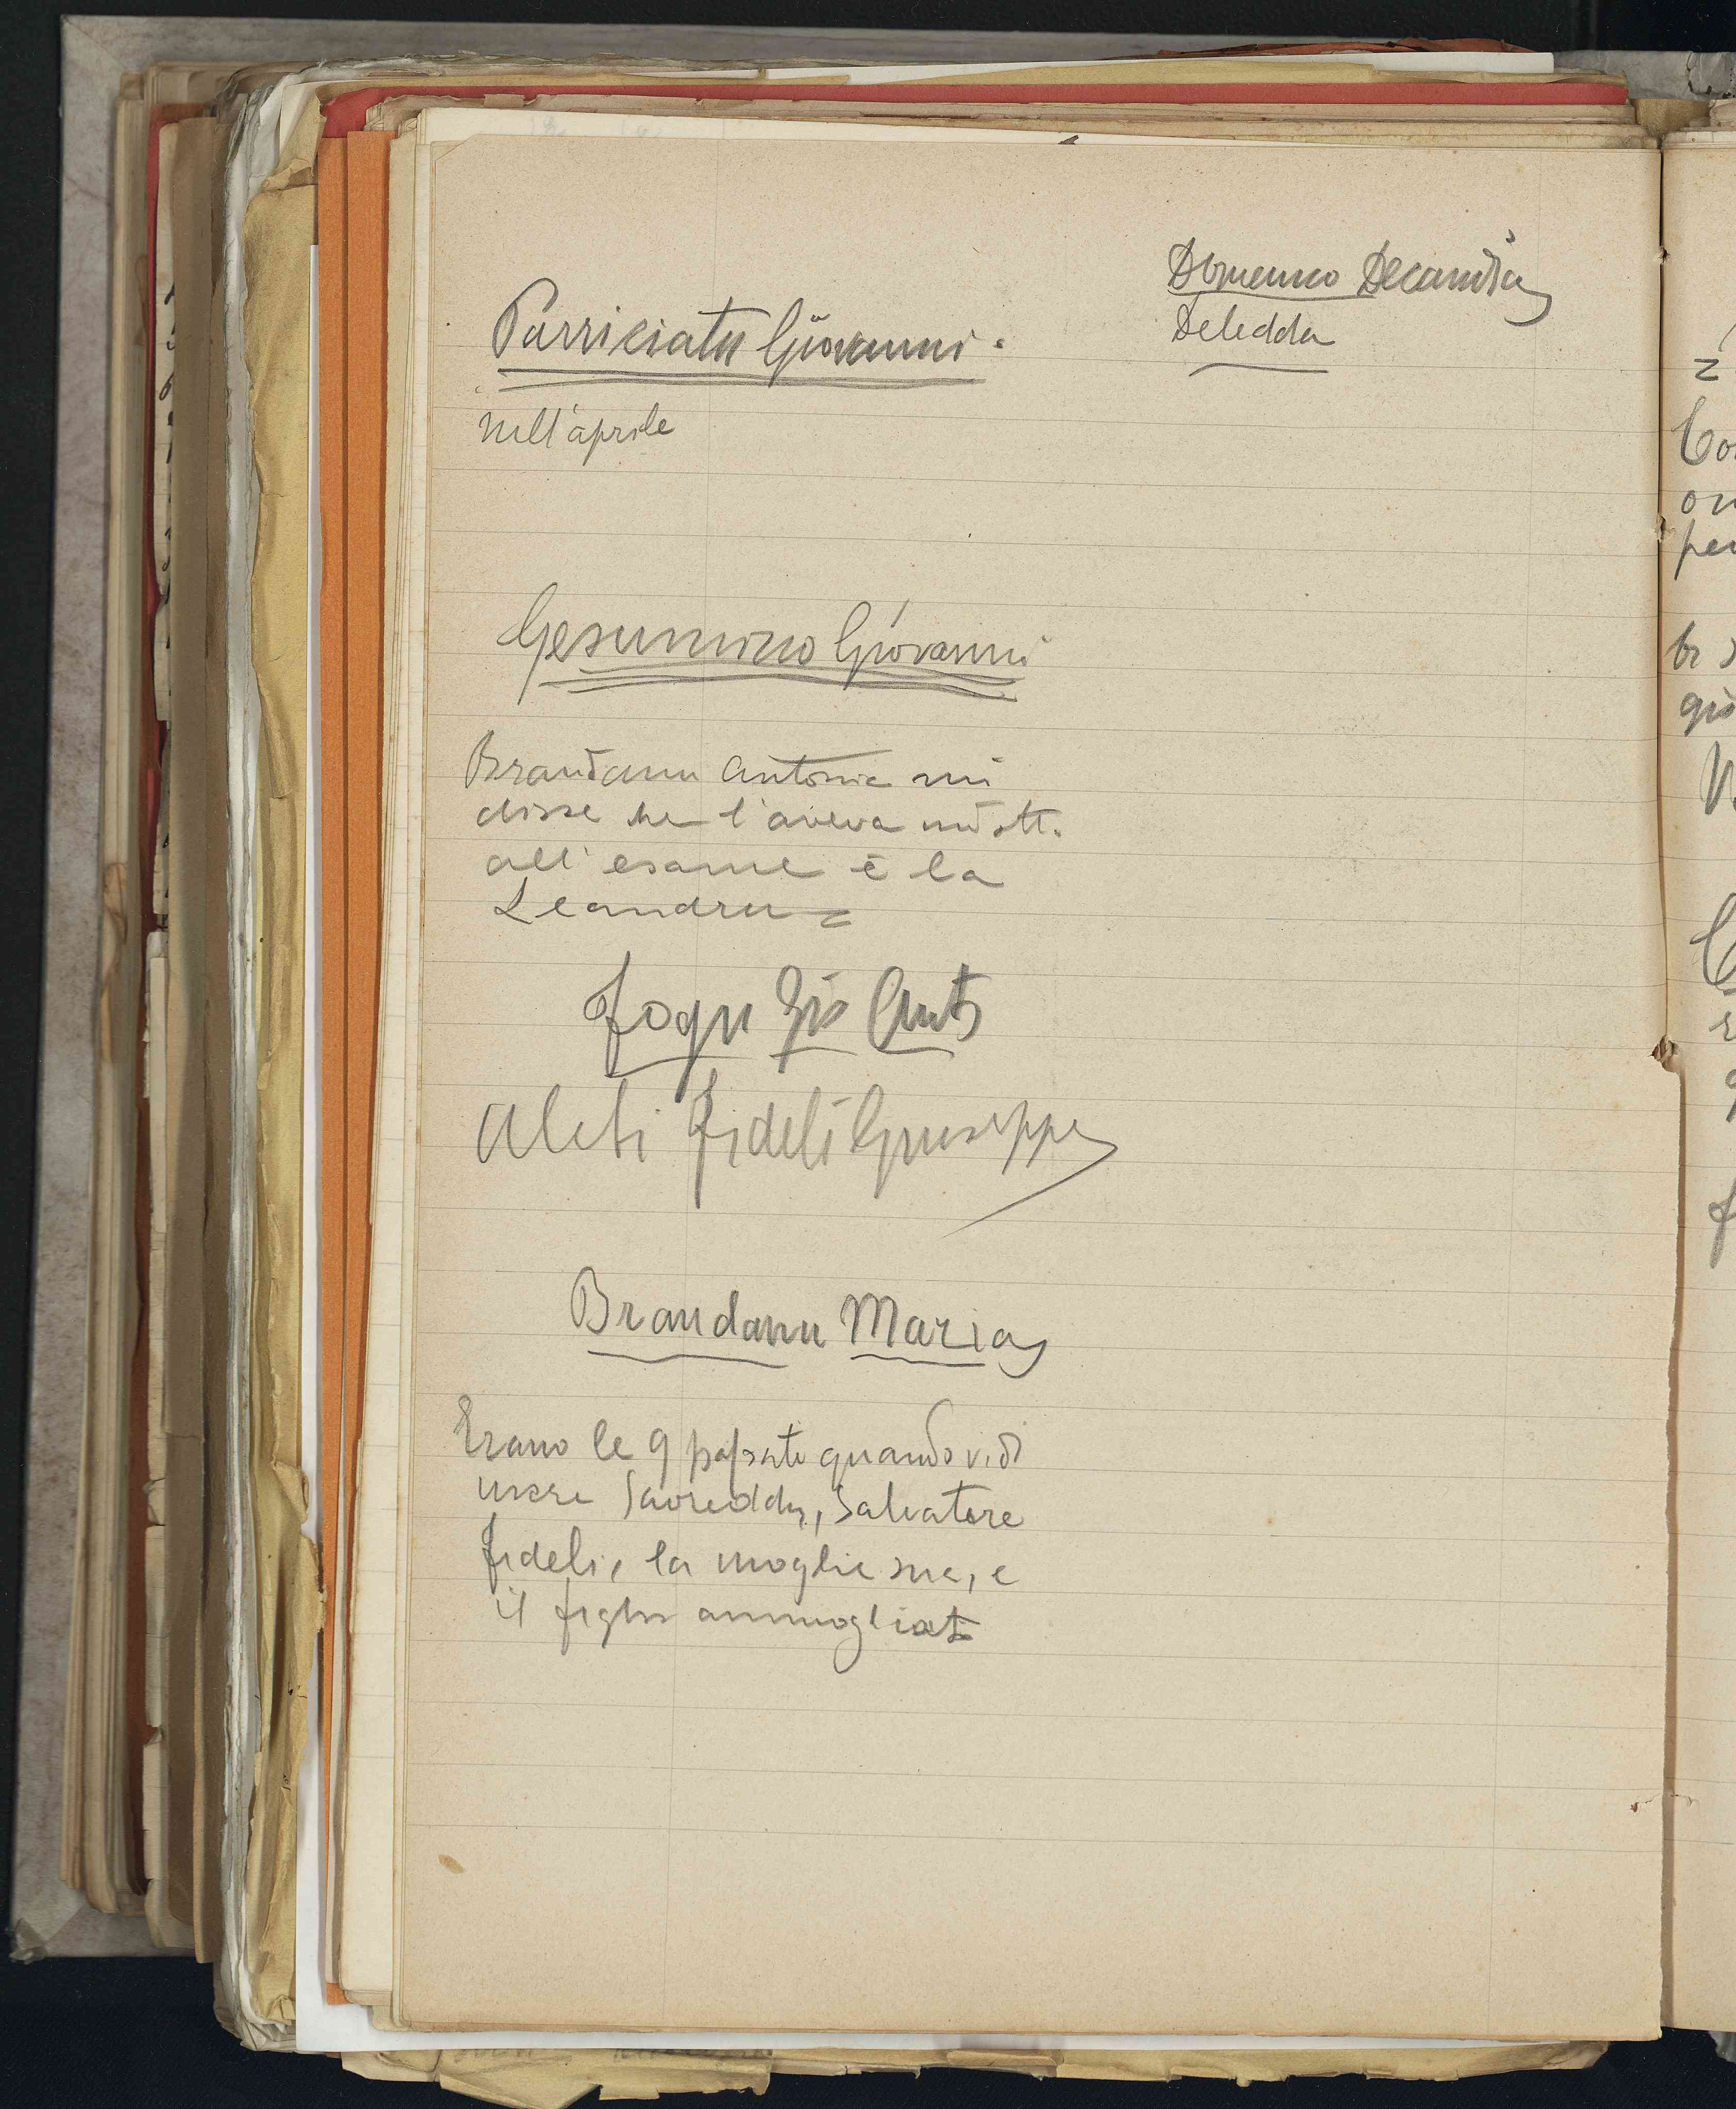 Domenico Decandia
Deledda
Parriciatu Giovanni.
nell'aprile
Gesumino Giovanni
Brandanu Antonia mi
disse che l'aveva
all'esame è la
Leandru =
Fogu Gio Ant
Aleti Fideli Giuseppe
Brandanu Maria
Erano le 9 passate quando vidi
uscire Savreddu, Salvatore
Fideli, la moglie sua, e
il figlio ammogliato